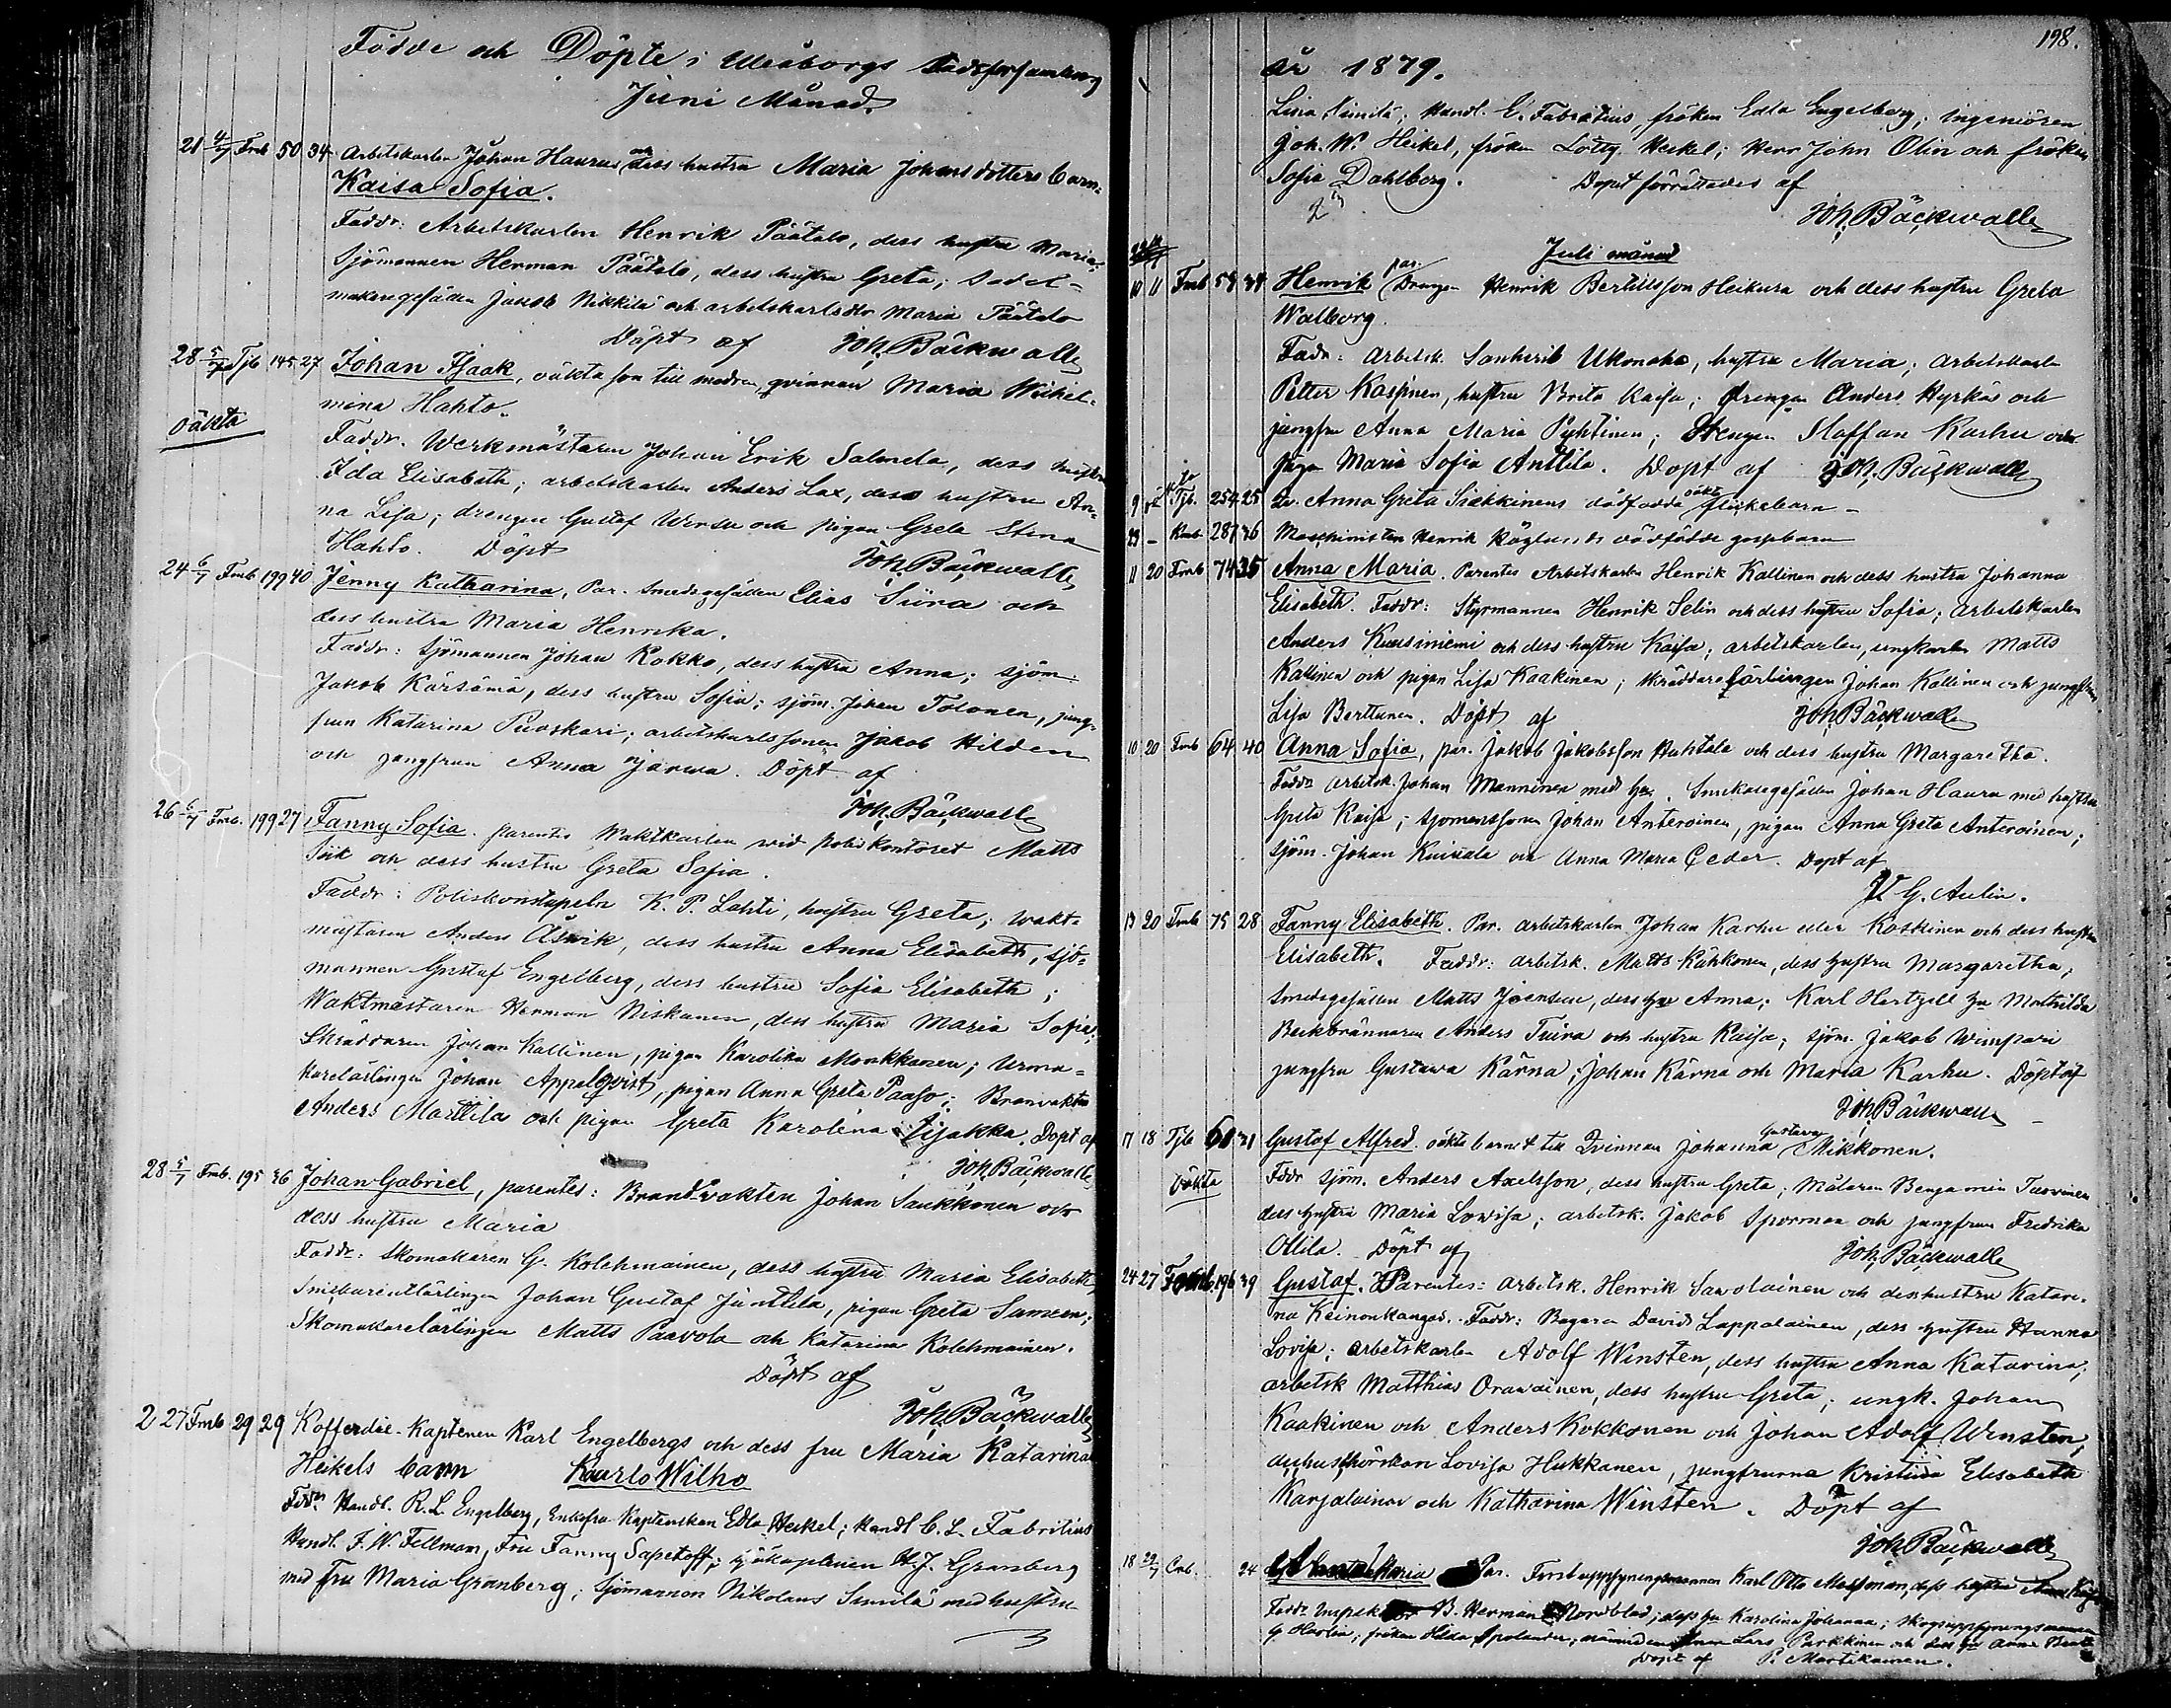 Födde och Döpte i Uleåborgs Stadsförsamling
Juni Månad.
21 4/7 Fmb 50 34 Arbetskarlen Johan Haurus och dess hustru Maria Johansdotters barn
Kaisa Sofia.
Faddr: Arbetskarlen Henrik Päätalo, dess hustru Maria;
Sjömannen Herman Päätalo, dess hustru Greta; Sadel-
makaregesällen Jakob Nikkilä och arbetskarlsdtr Maria Päätalo
Döpt af Joh. Bäckwall
28 5/7 Tjb 145 27 Johan Isaak, oäkta son till modren, qvinnan Maria Wilhel-
mina Hahto.
oäkta
Faddr. Werkmästaren Johan Erik Salmela, dess hustru
Ida Elisabeth; arbetskarlen Anders Lax, dess hustru An-
na Lisa; drengen Gustaf och pigan Greta Stina
Hahto. Döpt Joh. Bäckwall
24 6/7 Fmb 199 40 Jenny Katharina, Par. Smedsgesällen Elias Siira och
dess hustru Maria Henrika.
Faddr: Sjömannen Johan Kokko, dess hustru Anna; sjöm.
Jakob Kärsämä, dess hustru Sofia; sjöm. Johan Tolonen, jung-
frun Katarina Puoskari; arbetskarlssonen Jakob Hilden
och jungfrun Anna Järwa. Döpt af
Joh. Bäckwall
26 6/7 Fmb. 199 27 Fanny Sofia. Parentes Waktkarlen wid poliskontoret Matts
och dess hustru Greta Sofia.
Faddr: Poliskonstapeln K. P. Lahti, hustru Greta; wakt-
mästaren Anders Åswik, dess hustru Anna Elisabeth, sjö-
mannen Gustaf Engelberg, dess hustru Sofia Elisabeth;
Waktmästaren Herman Niskanen, dess hustru Maria Sofia;
Skräddaren Johan Kallinen, pigan Karolika Monkkonen; Urma-
karelärlingen Johan Appelqvist, pigan Anna Greta Paaso; Branvakten
Anders Marttila och pigan Greta Karolina Döpt af
Joh. Bäckwall
28 5/7 Fmb. 195 36 Johan Gabriel, parentes: Brandvakten Johan Saukkonen och
dess hustru Maria
Faddr: Skomakaren G. Kolehmainen, dess hustru Maria Elisabeth,
Snickarelärlingen Johan Gustaf Junttila, pigan Greta
Skomakarelärlingen Matts Paavola och Katarina Kolehmainen.
Döpt af
Joh. Bäckwall
2 27 Fmb 29 29 Kofferdie-Kaptenen Karl Engelbergs och dess fru Maria Katarina
Heikels barn Kaarlo Wilho
Fdr. Handl. R. L. Engelberg, Enkefru Kaptenskan Edla Heikel; Handl C. L. Fabritius
Handl. F. W. Fellman, Fru Fanny Sapetoff; sjökaptenen H. J. Granberg
med Fru Maria Granberg; Sjömannen Nikolaus Simelä med hustru
198.
år 1879.
Lisa Simelä; Handl. E. Fabritius, fröken Edla Engelberg; ingeniören
Joh. W. Heikel, fröken Lotty Heikel; Herr John Olin och fröken
Sofia Dahlberg. Dopet förrättades af
Joh. Bäckwall
Juli månad
10 11 Fmb 59 34 Henrik par. Drengen Henrik Bertilsson Heikura och dess hustru Greta
Walborg.
Fadr: Arbetsk. Sanherib Ukonaho, hustru Maria; arbetskarlen
Petter Kaspinen, hustru Brita Kaisa; drengen Anders Hyrkäs och
jungfru Anna Maria Pyhtinen; Drengen Staffan Karhu och
pigan Maria Sofia Anttila. Döpt af Joh. Bäckwall
9 Tjb. 254 25 Qv. Anna Greta Siekkinens dödfödda oäkta flickebarn
23 - Kmb 287 36 Maschinisten Henrik Höglunds dödfödde gossebarn
11 20 Fmb 74 35 Anna Maria. Parentes Arbetskarlen Henrik Kallinen och dess hustru Johanna
Elisabeth. Faddr: Styrmannen Henrik Selin och dess hustru Sofia; arbetskarlen
Anders Kuusiniemi och dess hustru Kaisa; arbetskarlen, ungkarlen Matts
Kallinen och pigan Lisa Kaakinen; skräddarelärlingen Johan Kallinen och jungfrun
Lisa Berttunen. Döpt af Joh. Bäckwall
10 20 Fmb 64 40 Anna Sofia, par. Jakob Jakobsson Huhtala och dess hustru Margaretha.
Faddr Arbetsk. Johan Manninen med hu. Snickaregesällen Johan Haura med hustru
Greta Kaisa; sjömanssonen Johan Anteroinen, pigan Anna Greta Anteroinen;
sjöm. Johan Kuivala och Anna Maria Ceder. Döpt af
W. G. Aulin.
13 20 Fmb 75 28 Fanny Elisabeth. Par. arbetskarlen Johan Karhu eller Koskinen och dess hustru
Elisabeth. Faddr: arbetsk. Matts Kähkönen, dess hustru Margaretha;
Smedsgesällen Matts Joensuu, dess hu Anna; Karl Hertzell hu Mathilda
Beckbrännaren Anders Tuira och hustru Kaisa; sjöm. Jakob Wimpari
jungfru Gustawa Kärnä; Johan Kärnä och Maria Karhu. Döpt af
Joh. Bäckwall
17 18 Tjb 60 31 Gustaf Alfred. oäkta barnet till Qvinnan Johanna Gustava Mikkonen.
oäkta
Fddr sjöm. Anders Axelsson, dess hustru Greta; Målaren Benjamin Tuovinen
dess hustru Maria Lowisa; arbetsk. Jakob Sporman och jungfrun Fredrika
Ollila. Döpt af Joh. Bäckwall
24 27 Fmb. 196 39 Gustaf. Parentes: arbetsk. Henrik Sawolainen och dess hustru Katari-
na Keinonkangas. Faddr: Bagaren David Lappalainen, dess hustru Hanna
Lovisa; arbetskarlen Adolf Winsten, dess hustru Anna Katarina;
arbetsk Matthias Orawainen, dess hustru Greta; ungk. Johan
Kaakinen och Anders Kokkonen och Johan Adolf Winsten,
Lovisa Hukkanen, jungfrurna Kristina Elisabeth
Karjalainen och Katharina Winsten. Döpt af
Joh. Bäckwall
18 29/7 Cmb. 24 Maria Par. Forstuppsyningsmannen Karl Otto dess hustru
Faddr B. Herman Nordblad, dess hu Karolina Johanna; skogsuppsyningsmannen
G. fröken Hilda Lars Parkkinen och dess hu Anna
Döpt af P. Martikainen.